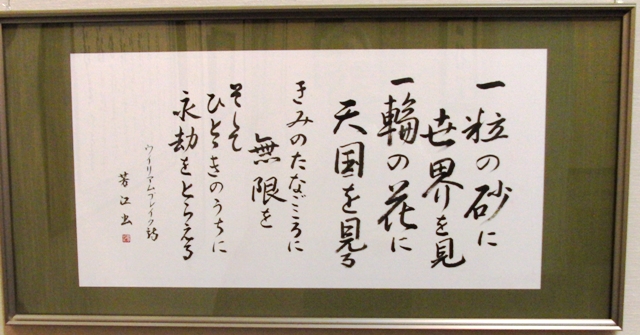 一粒の砂に
世界を見
一輪の花に
天国を見る
きみのたなごころに
無限を
そして
ひとときのうちに
永劫をとらえる
ウイリアムブレイク詩
芳江书